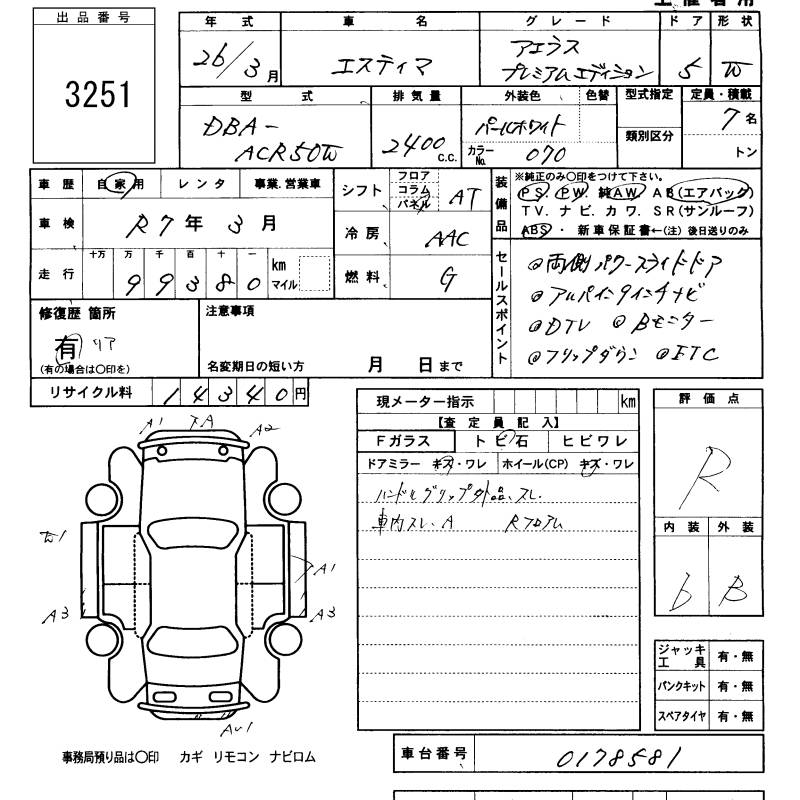 出品番号
3251
年式 車名 グレード ドア 形状
26/3月 エスティマ アエラス プレミアムエディション 5 W
型式 排気量 外装色 色替 型式指定 定員・積載
DBA-ACR50W 2400c.c. パールホワイト 類別区分 7名
カラーNo. 070 トン
車歴 自家用 レンタ 事業.営業車
車検 R7年3月
走行 十万 万 千 百 十 一
99380 km マイル
シフト フロア コラム パネル AT
冷房 AAC
燃料 G
装備品 ※純正のみ○印をつけて下さい。
PS. PW. 純AW. AB(エアバック)
TV. ナビ. カワ. SR(サンルーフ)
ABS・新車保証書←(注)後日送りのみ
セールスポイント
◎両側パワースライドドア
◎アルパイン9インチナビ
◎DTV ◎Bモニター
◎フリップダウン ◎ETC
修復歴 箇所
有 リア
(有の場合は○印を)
注意事項
名変期日の短い方 月 日まで
リサイクル料 14340円
現メーター指示 km
【査定員記入】
Fガラス トビ石 ヒビワレ
ドアミラー キズ・ワレ ホイール(CP) キズ・ワレ
ハンドルグリップ外品、スレ.
車内スレ.A Rフロアム
評価点
R
内装 外装
b B
A1 TA A2
W1 A1
A3 A3
AU1
ジャッキ工具 有・無
パンクキット 有・無
スペアタイヤ 有・無
事務局預り品は○印 カギ リモコン ナビロム
車台番号 0178581